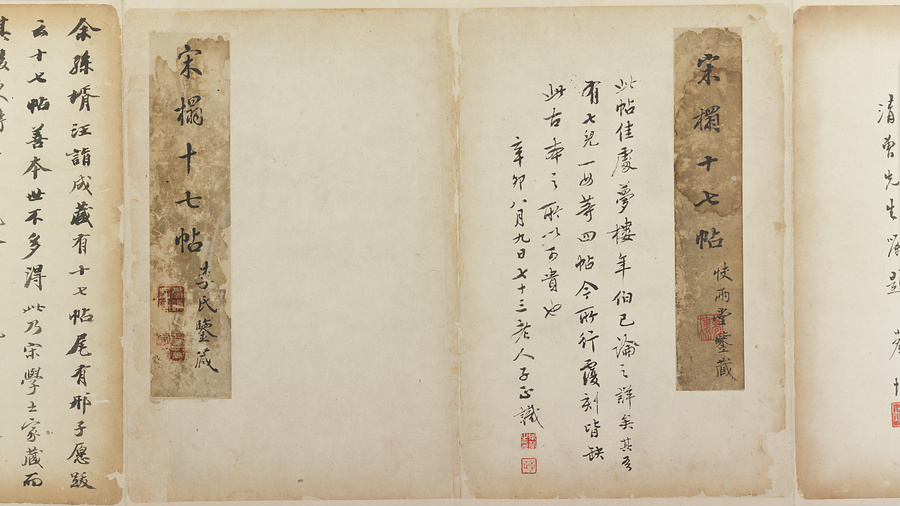 先生屬題
宋搨十七帖
快雨堂鑒藏
此帖佳處夢樓年伯已論之詳矣其
有七兒一女等四帖今所行覆刻皆缺
此古本之所以可貴也
辛卯八月九日七十三老人子正識
宋搨十七帖
氏鑒藏
余孫壻汪詣成藏有十七帖尾有邢子愿跋
云十七帖善本世不多得此乃宋學士家藏而